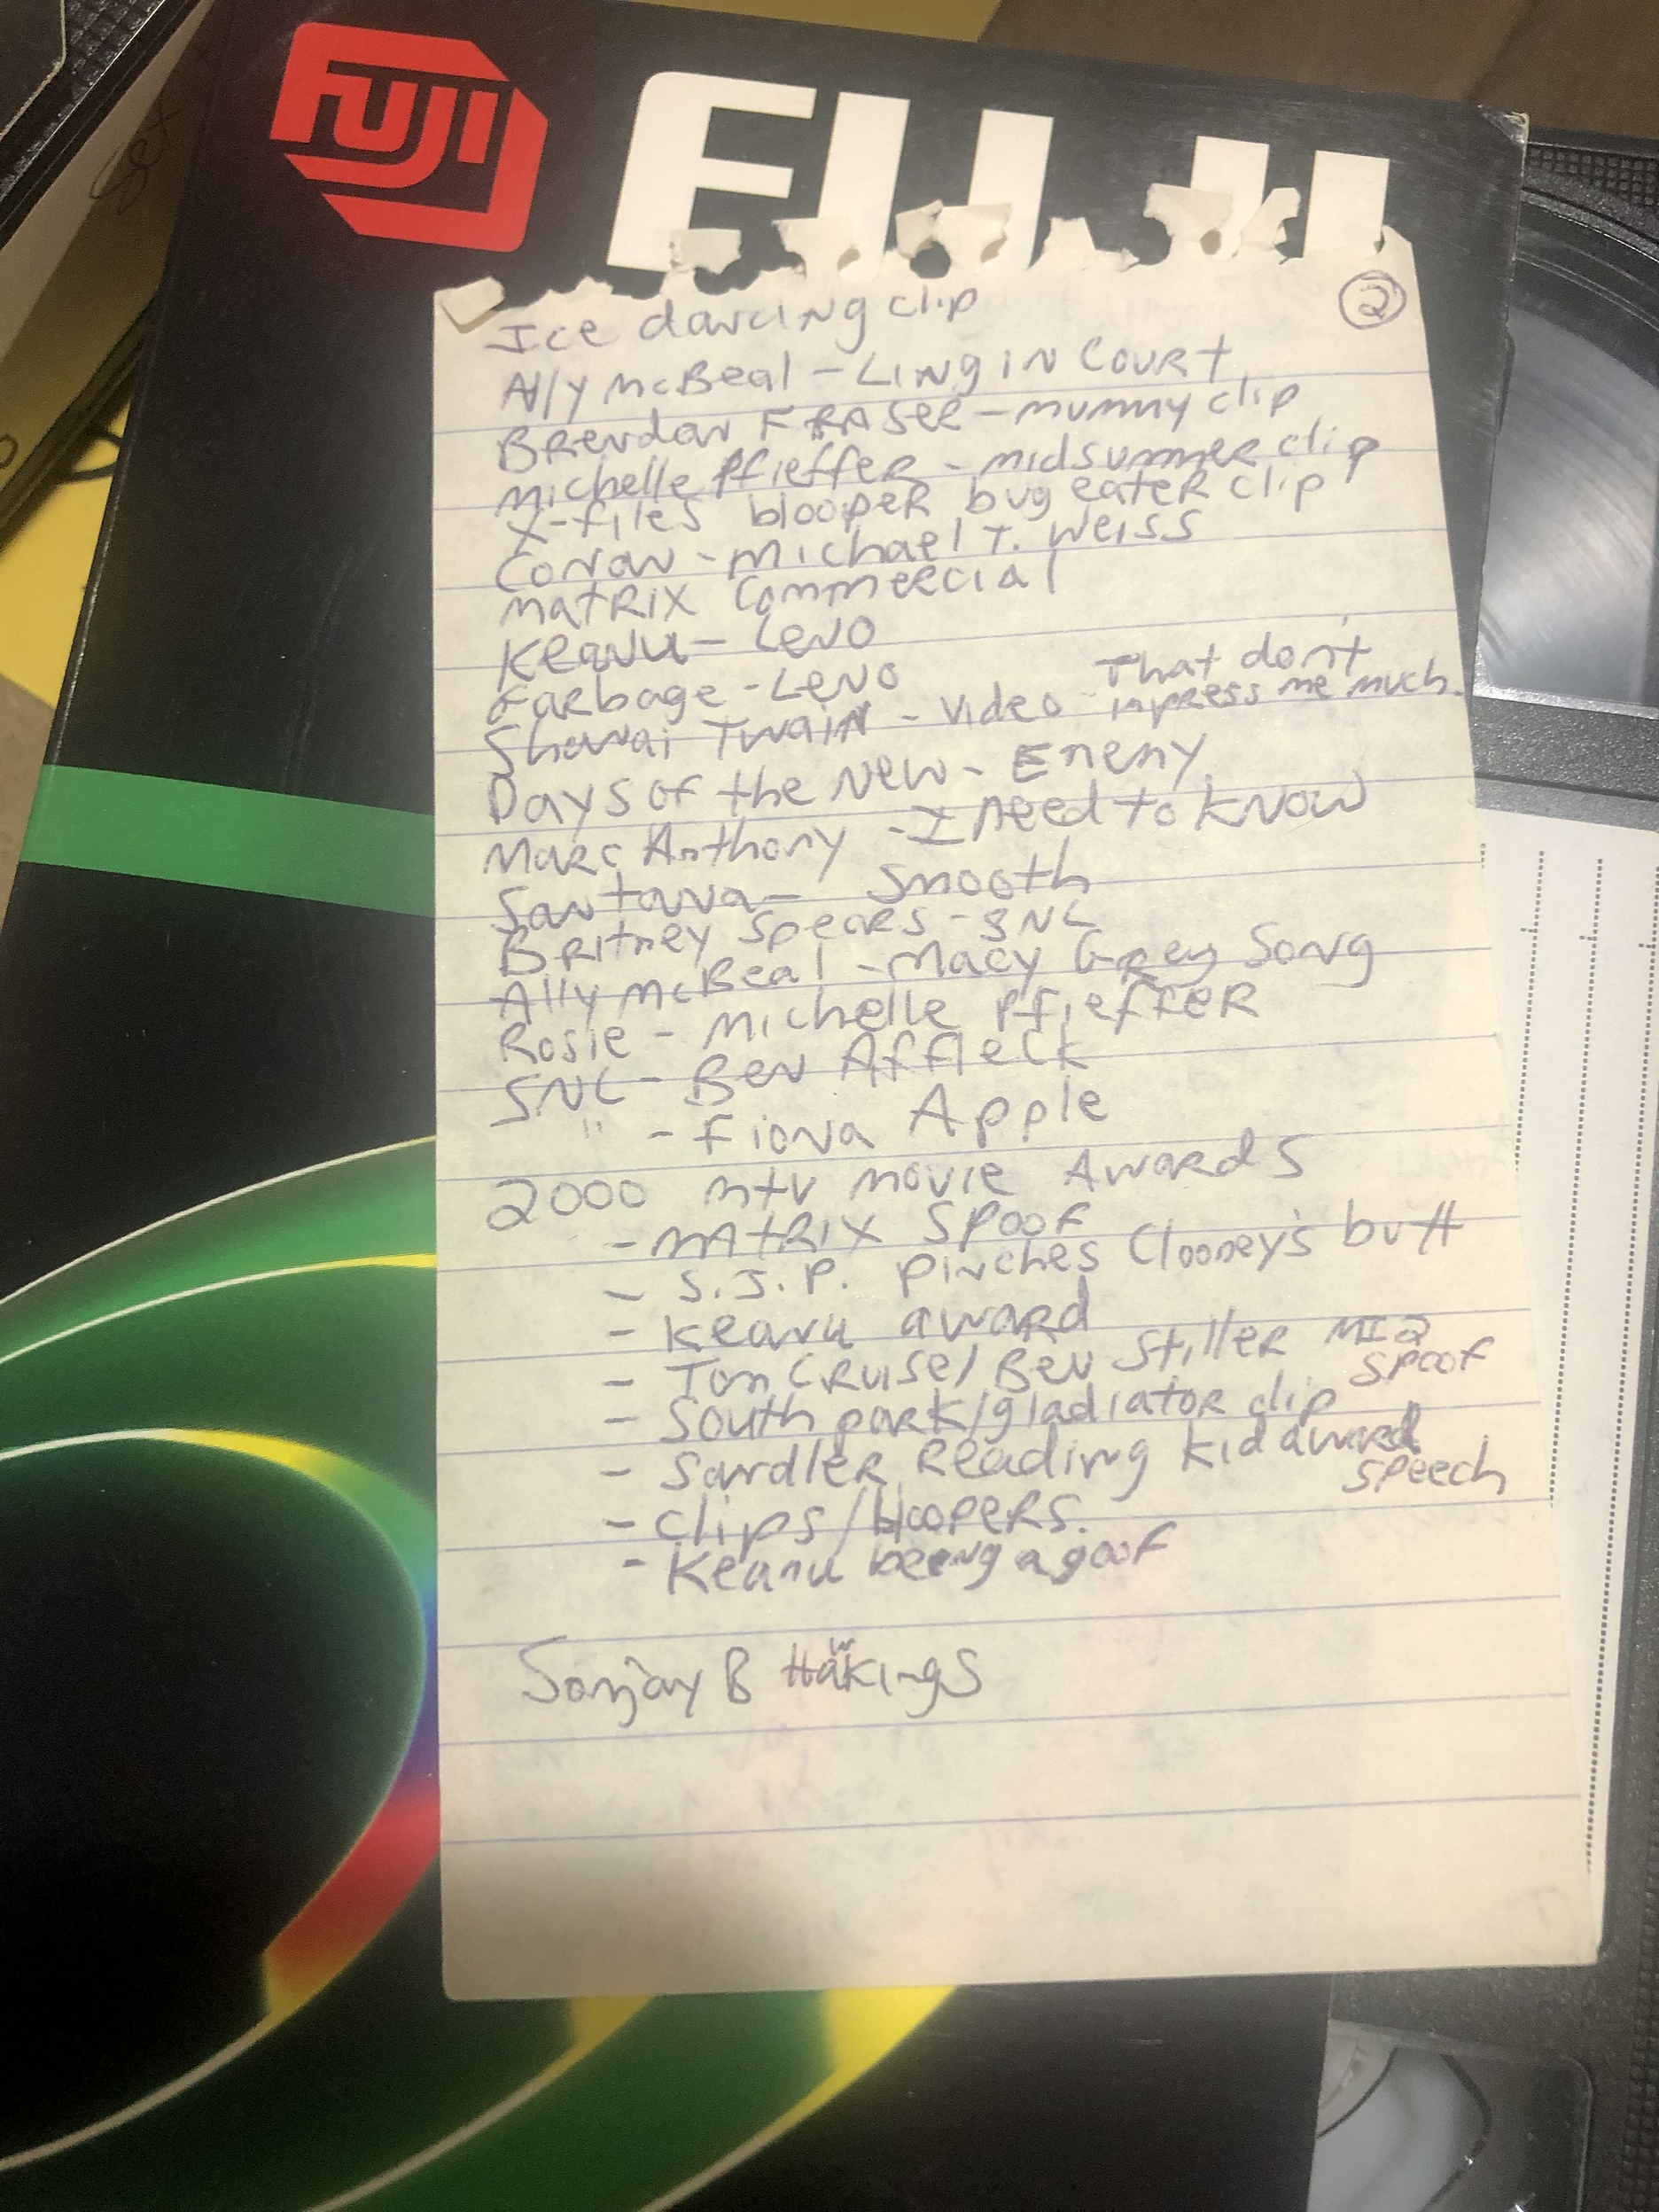 FUJI
FUJI
②
Ice dancing clip
Ally McBeal - Ling in Court
Brendan FRASER - mummy clip
Michelle Pfieffer - midsummer clip
X-files blooper bug eater clip
Conan - Michael T. Weiss
Matrix Commercial
Keanu - Leno
Garbage - Leno
Shanai Twain - Video - That don't
inpress me much.
Days of the New - Enemy
Marc Anthony - I need to know
Santana - Smooth
Britney Spears - SNL
Ally McBeal - Macy Grey Song
Rosie - Michelle Pfieffer
SNL - Ben Affleck
" - Fiona Apple
2000 mtv movie Awards
- MAtRIX Spoof
- S.J.P. pinches Clooney's butt
- Keanu award
- Tom Cruise/Ben Stiller MI2
Spoof
- South park/gladiator clip
- Sandler Reading kid award
speech
- Clips/bloopers.
- Keanu being a goof
Sanjay B Hawkings